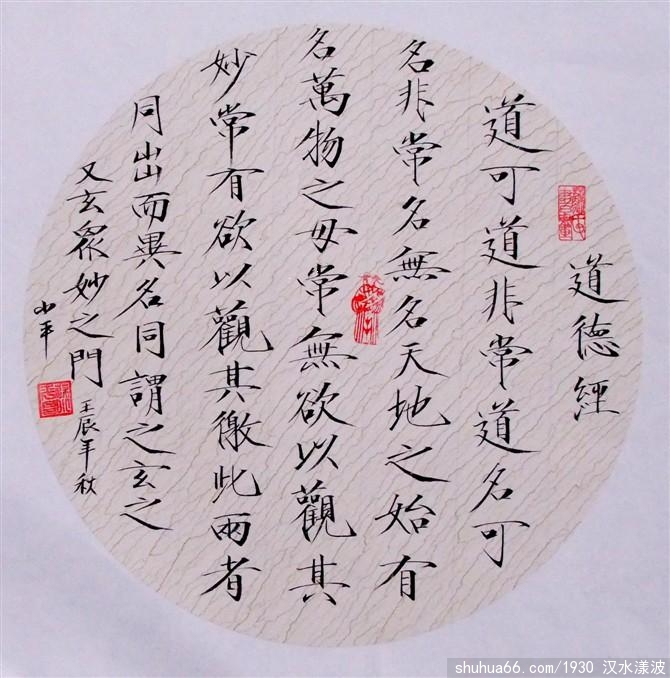 道德經
道可道非常道名可
名非常名無名天地之始有
名萬物之母常無欲以觀其
妙常有欲以觀其徼此兩者
同出而異名同謂之玄之
又玄衆妙之門
壬辰年秋
小平
shuhua66.com/1930 汉水漾波